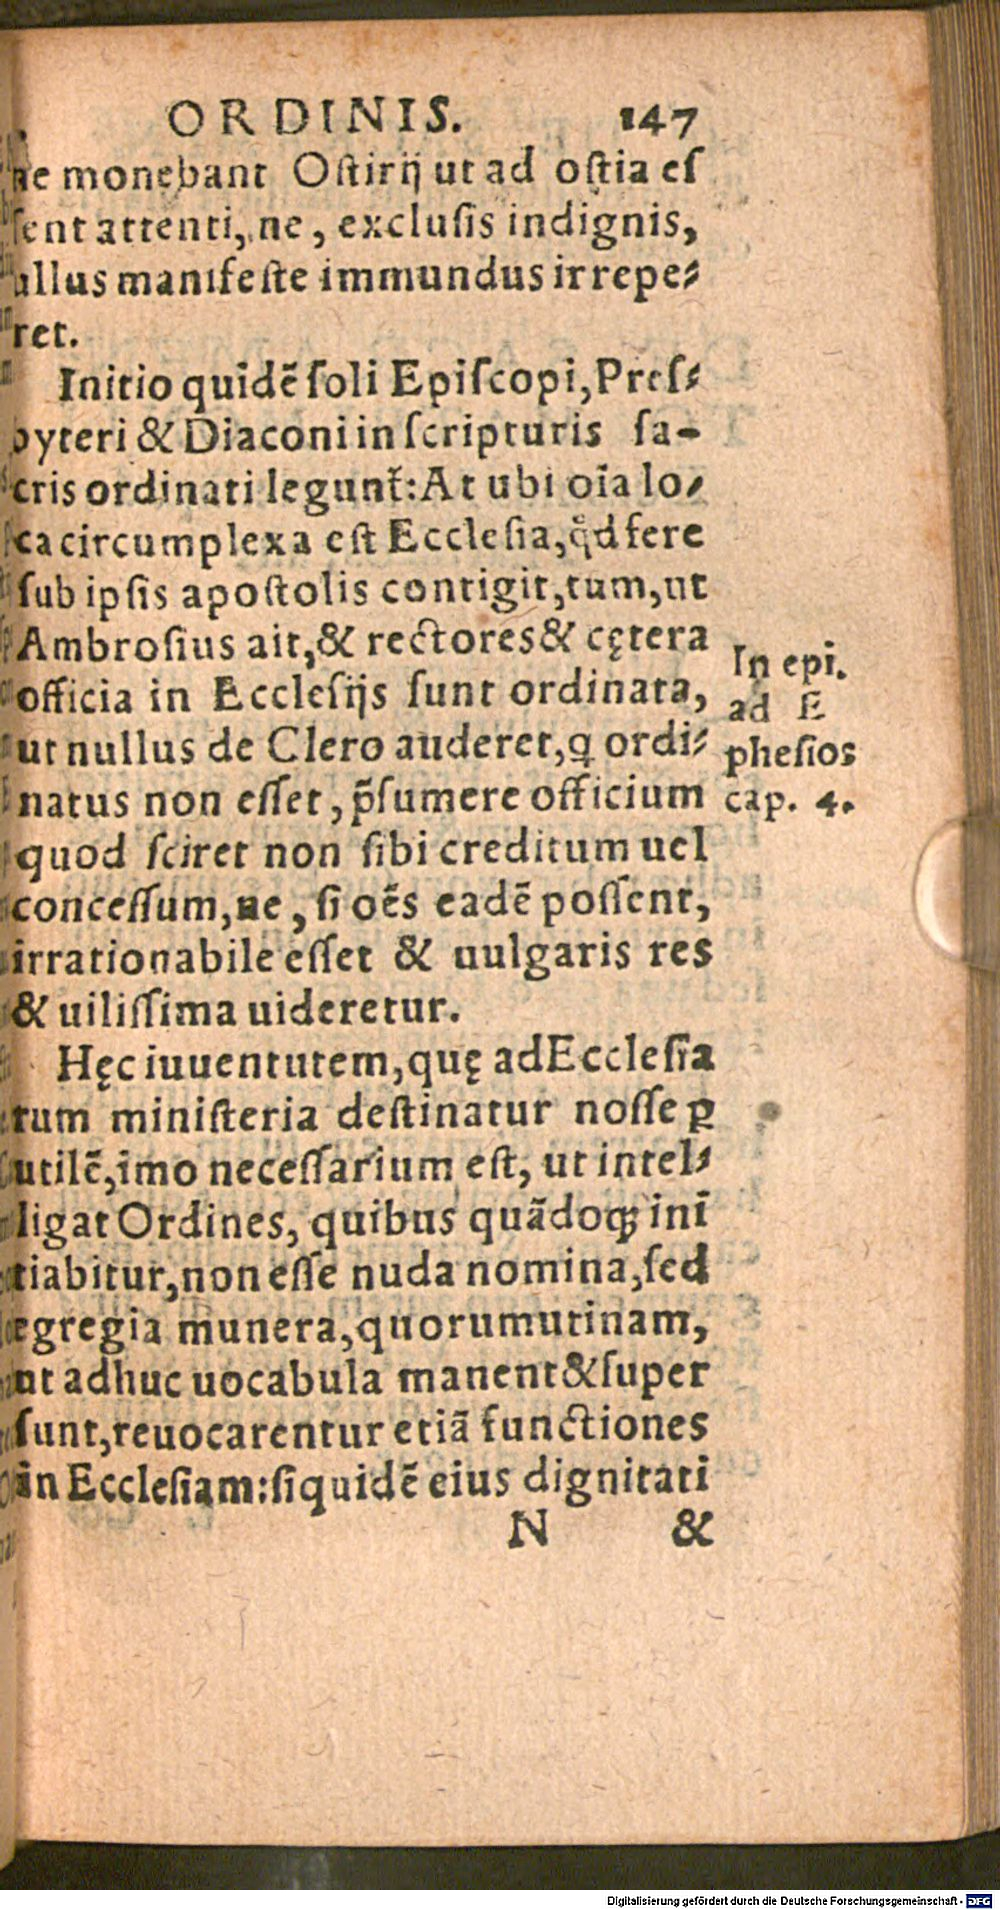 ORDINIS. 147
ne monebant Ostirij ut ad ostia es
sent attenti, ne, exclusis indignis,
ullus manifeste immundus irrepe⸗
ret.
Initio quidẽ soli Episcopi, Pres⸗
byteri & Diaconi in scripturis sa-
cris ordinati legunt᷑: At ubi oĩa lo⸗
ca circumplexa est Ecclesia, qd̃ fere
sub ipsis apostolis contigit, tum, ut
Ambrosius ait, & rectores & cętera
officia in Ecclesijs sunt ordinata,
ut nullus de Clero auderet, q ordi⸗
natus non esset, p̃sumere officium
quod sciret non sibi creditum uel
concessum, ne, si oẽs eadẽ possent,
irrationabile esset & uulgaris res
& uilissima uideretur.
In epi.
ad E
phesios
cap. 4.
Hęc iuuentutem, quę ad Ecclesia
rum ministeria destinatur nosse ꝑ
utilẽ, imo necessarium est, ut intel⸗
ligat Ordines, quibus quãdoqꝫ ini
tiabitur, non esse nuda nomina, sed
egregia munera, quorum utinam,
ut adhuc uocabula manent & super
sunt, reuocarentur etiã functiones
in Ecclesiam: siquidẽ eius dignitati
N &
Digitalisierung gefördert durch die Deutsche Forschungsgemeinschaft - DFG